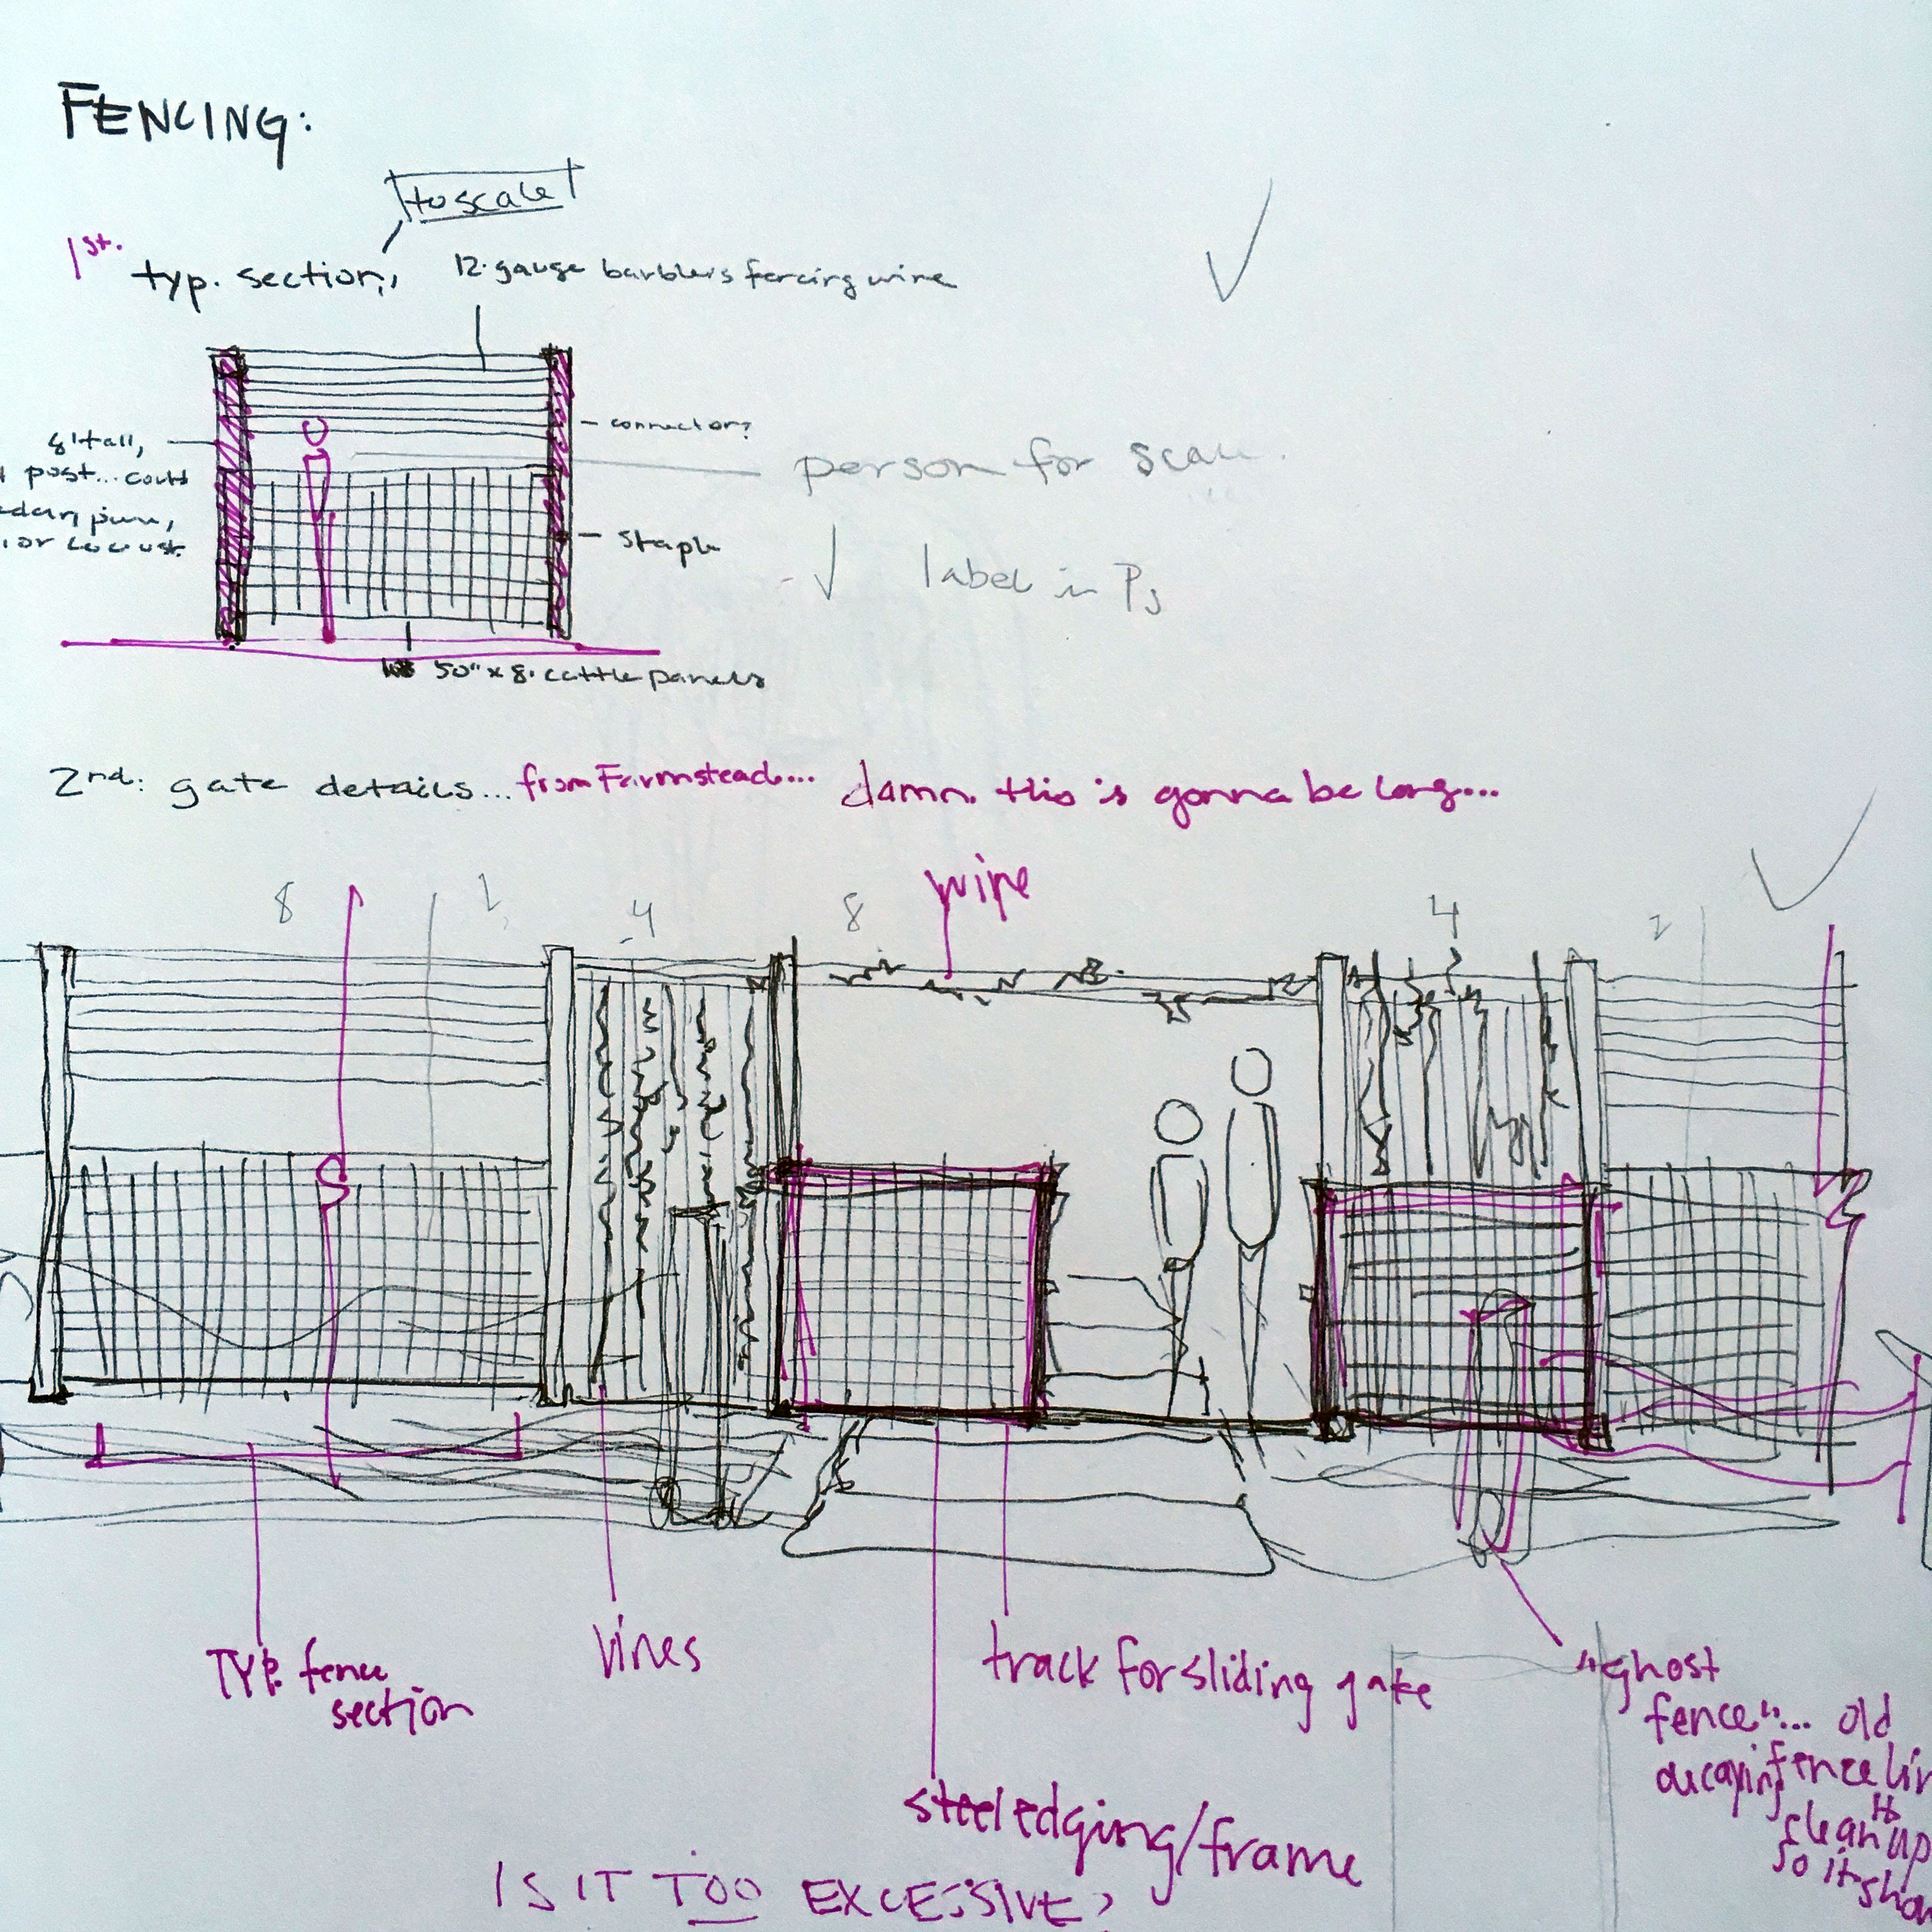 FENCING:
to scale
1st.
typ. section,
12. gauge barbless fencing wire
8' tall,
post... could
or locust.
connector?
person for scale.
staple
label in PS
50" x 8' cattle panels
2nd: gate details... from Farmstead... damn. this is gonna be long...
wire
8
2
4
8
4
2
TYP. fence
section
vines
track for sliding gate
"ghost
fence"... old
decaying fence lin
clean up
so it sho
steel edging/frame
IS IT TOO EXCESSIVE?